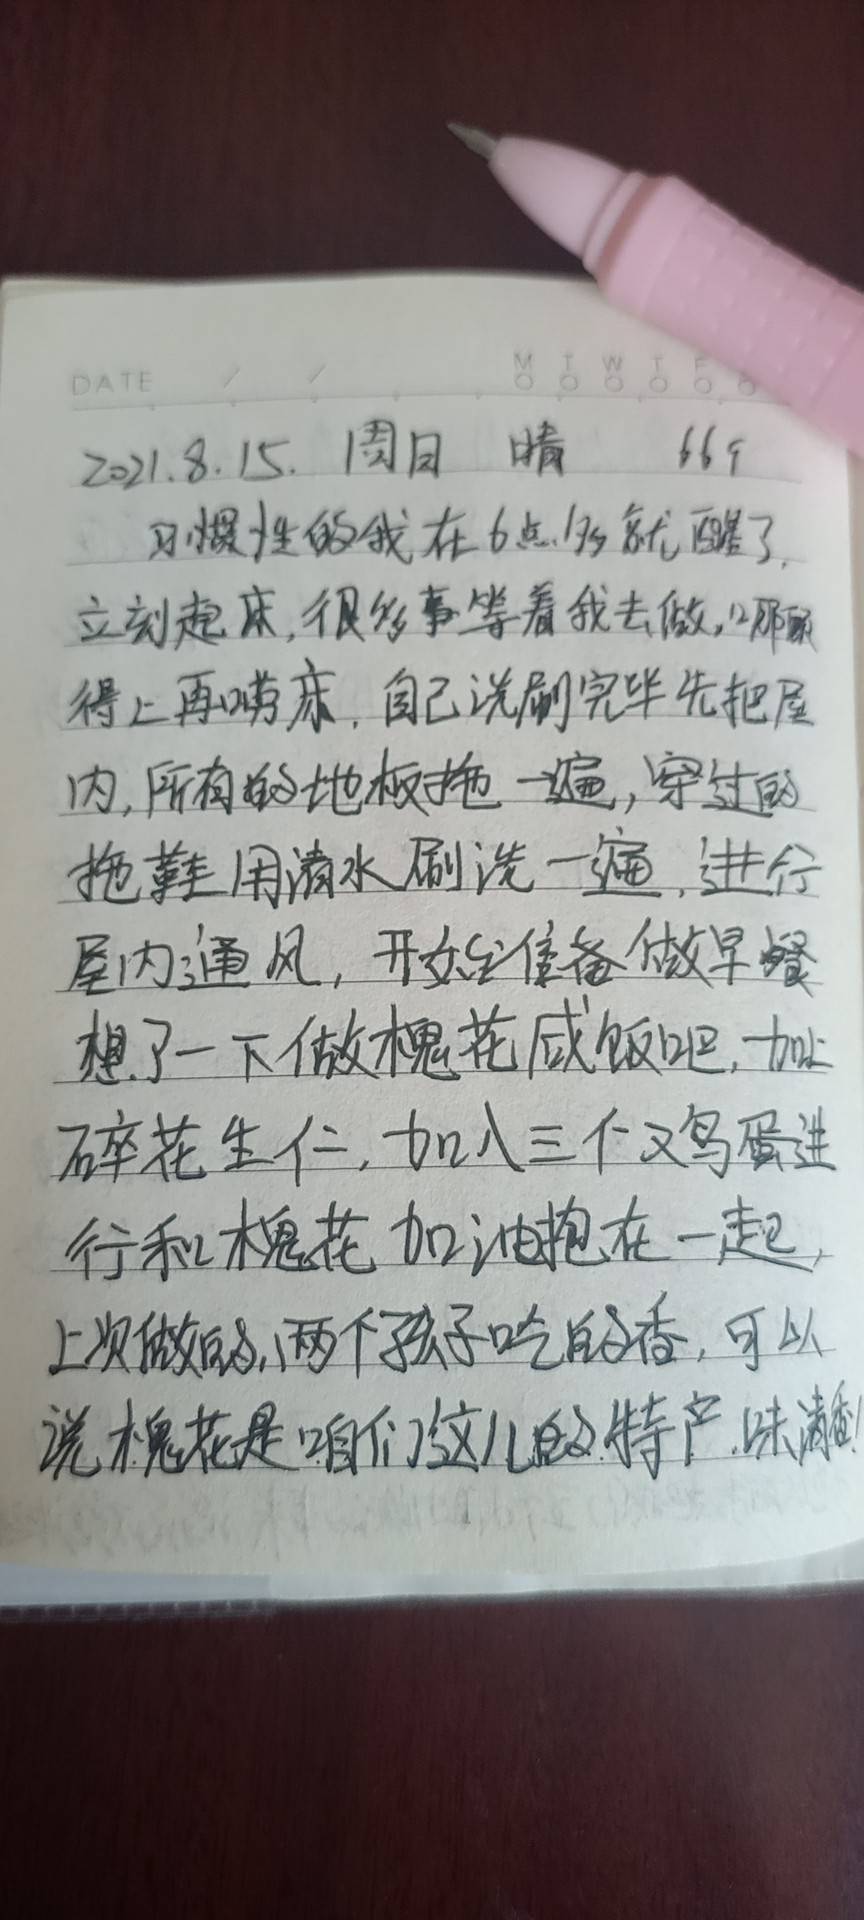 DATE / / M T W T F
2021.8.15. 周日 晴 669
习惯性的我在6点多就醒了,
立刻起床,很多事等着我去做,哪顾
得上再唠床,自己洗刷完毕先把屋
内,所有的地板拖一遍,穿过的
拖鞋用清水刷洗一遍,进行
屋内通风,开始准备做早餐
想了一下做槐花咸饭吧,加上
碎花生仁,加入三个鸡蛋进
行和槐花加油抱在一起,
上次做的,两个孩子吃的香,可以
说槐花是咱们这儿的特产,味清香!